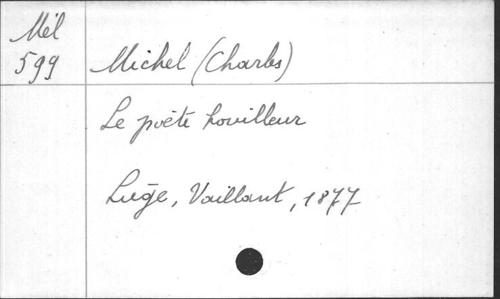 Mél
599
Michel (Charles)
Le poète houilleur
Liège, Vaillant, 1877